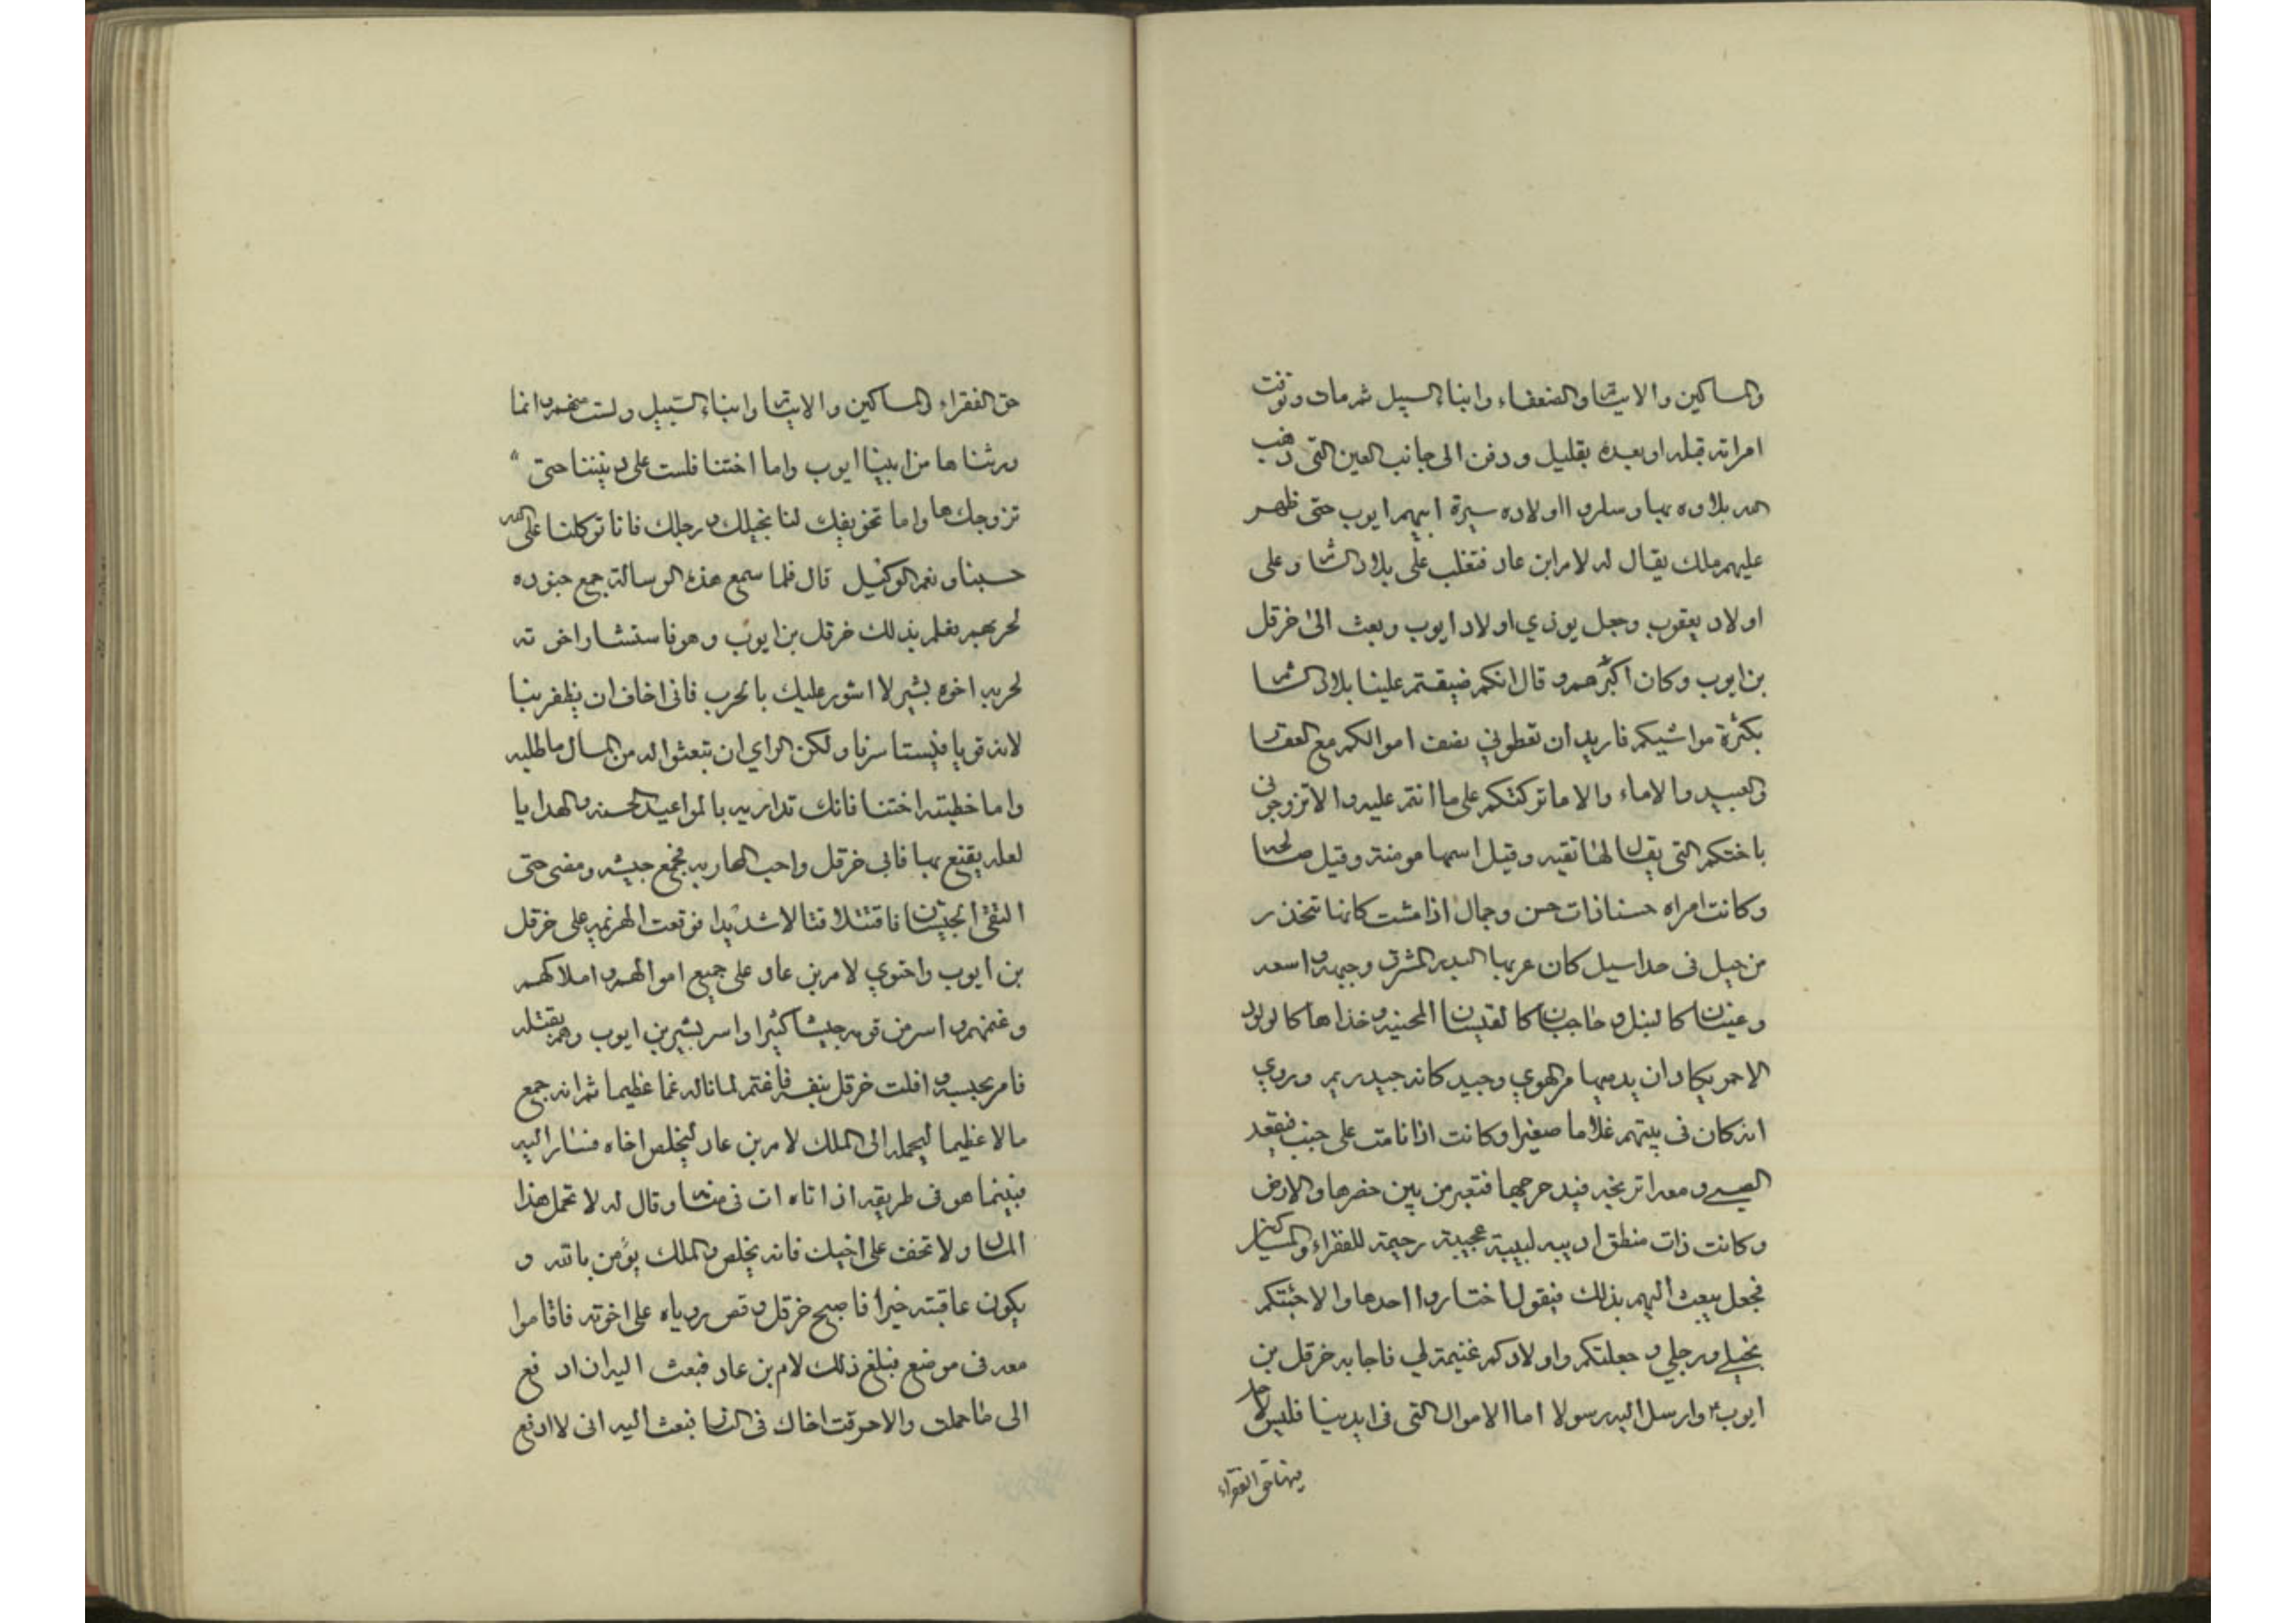 والمساكين والايتام والضعفاء وابناء السبيل ثم مات وتوفت
امراته قبله او بعده بقليل ودفن الى جانب العين التي ذهب
الله بلاوه بها وسلموا اولاده سيرة ابيهم ايوب حتى ظهر
عليهم ملك يقال له لام ابن عاد فتغلب على بلاد الشام وعلى
اولاد يعقوب وجعل يوذي اولاد ايوب وبعث الى خرقل
بن ايوب وكان اكبرهم وقال انكم ضيقتم علينا بلاد الشام
بكثرة مواشيكم فاريد ان تعطوني نصف اموالكم مع
العبيد والاماء والا ما تركتكم على ما انتم عليه والا تزوجوني
باختكم التي يقال لها تقيه وقيل اسمها مومنة وقيل صالحه
وكانت امراه حسنا ذات حسن وجمال اذا مشت كانها تنحدر
من جبل في حد اسيل كان عربها البدر المشرق وجبهه واسعه
وعينان كالنبل وحاجبان كالقيسان المحنيه وخداها كالورد
الاحمر يكاد ان يدميها مر الهوي وجيد كانه جيد ريم وروي
انه كان في بيتهم غلاما صغيرا وكانت اذا نامت على جنب فيقعد
الصبي ومعه اترنجه فيدحرجها فتعبر من بين خصرها والارض
وكانت ذات منطق اديبه لبيبة عجيبة رحيمة للفقراء والمساكين
فجعل يبعث اليهم بذلك فيقول اختاروا احدها والا جئتكم
بخيلي ورجلي وجعلتكم واولادكم غنيمة لي فاجابه خرقل بن
ايوب وارسل اليه رسولا اما الاموال التي في ايدينا فليس لك
فيها حق الفقراء
حق الفقراء والمساكين والايتام وابناء السبيل ولست منهم وانما
ورثناها من ابينا ايوب واما اختنا فلست على ديننا حتى
نزوجك ها واما تخويفك لنا بخيلك ورجلك فانا توكلنا على الله
حسبنا ونعم الوكيل قال فلما سمع هذه الرسالة جمع جنوده
لحربهم فعلم بذلك خرقل بن ايوب وهو فاستشار اخوته
لحربه اخوه بشير لا اشور عليك بالحرب فاني اخاف ان يظفر بنا
لانه قويا فيستاسرنا ولكن الراي ان تبعثوا له من المال ما طلبه
واما خطبته اختنا فانك تداريه بالمواعيد الحسنه والهدايا
لعله يقنع بها فابى خرقل واحب المحاربه فجمع جيشه ومضى حتى
التقى الجيشان فاقتتلا قتالا شديدا فوقعت الهزيمه على خرقل
بن ايوب واحتوي لام بن عاد على جميع اموالهم واملاكهم
وغنمهم واسر من قومه جيشا كثيرا واسر بشير بن ايوب وهم بقتله
فامر بحبسه وافلت خرقل بنفسه فاغتم لما ناله غما عظيما ثم انه جمع
مالا عظيما ليحمله الى الملك لام بن عاد ليخلص اخاه فسار اليه
فبينما هو في طريقه اذ اتاه ات في منامه وقال له لا تحمل هذا
المال ولا تخف على اخيك فانه يخلص والملك يؤمن بالله و
يكون عاقبته خيرا فاصبح خرقل وقص روياه على اخوته فاقاموا
معه في موضع فبلغ ذلك لام بن عاد فبعث اليه ان ادفع
الى ما حملت والا حرقت اخاك في النار فبعث اليه اني لا ادفع